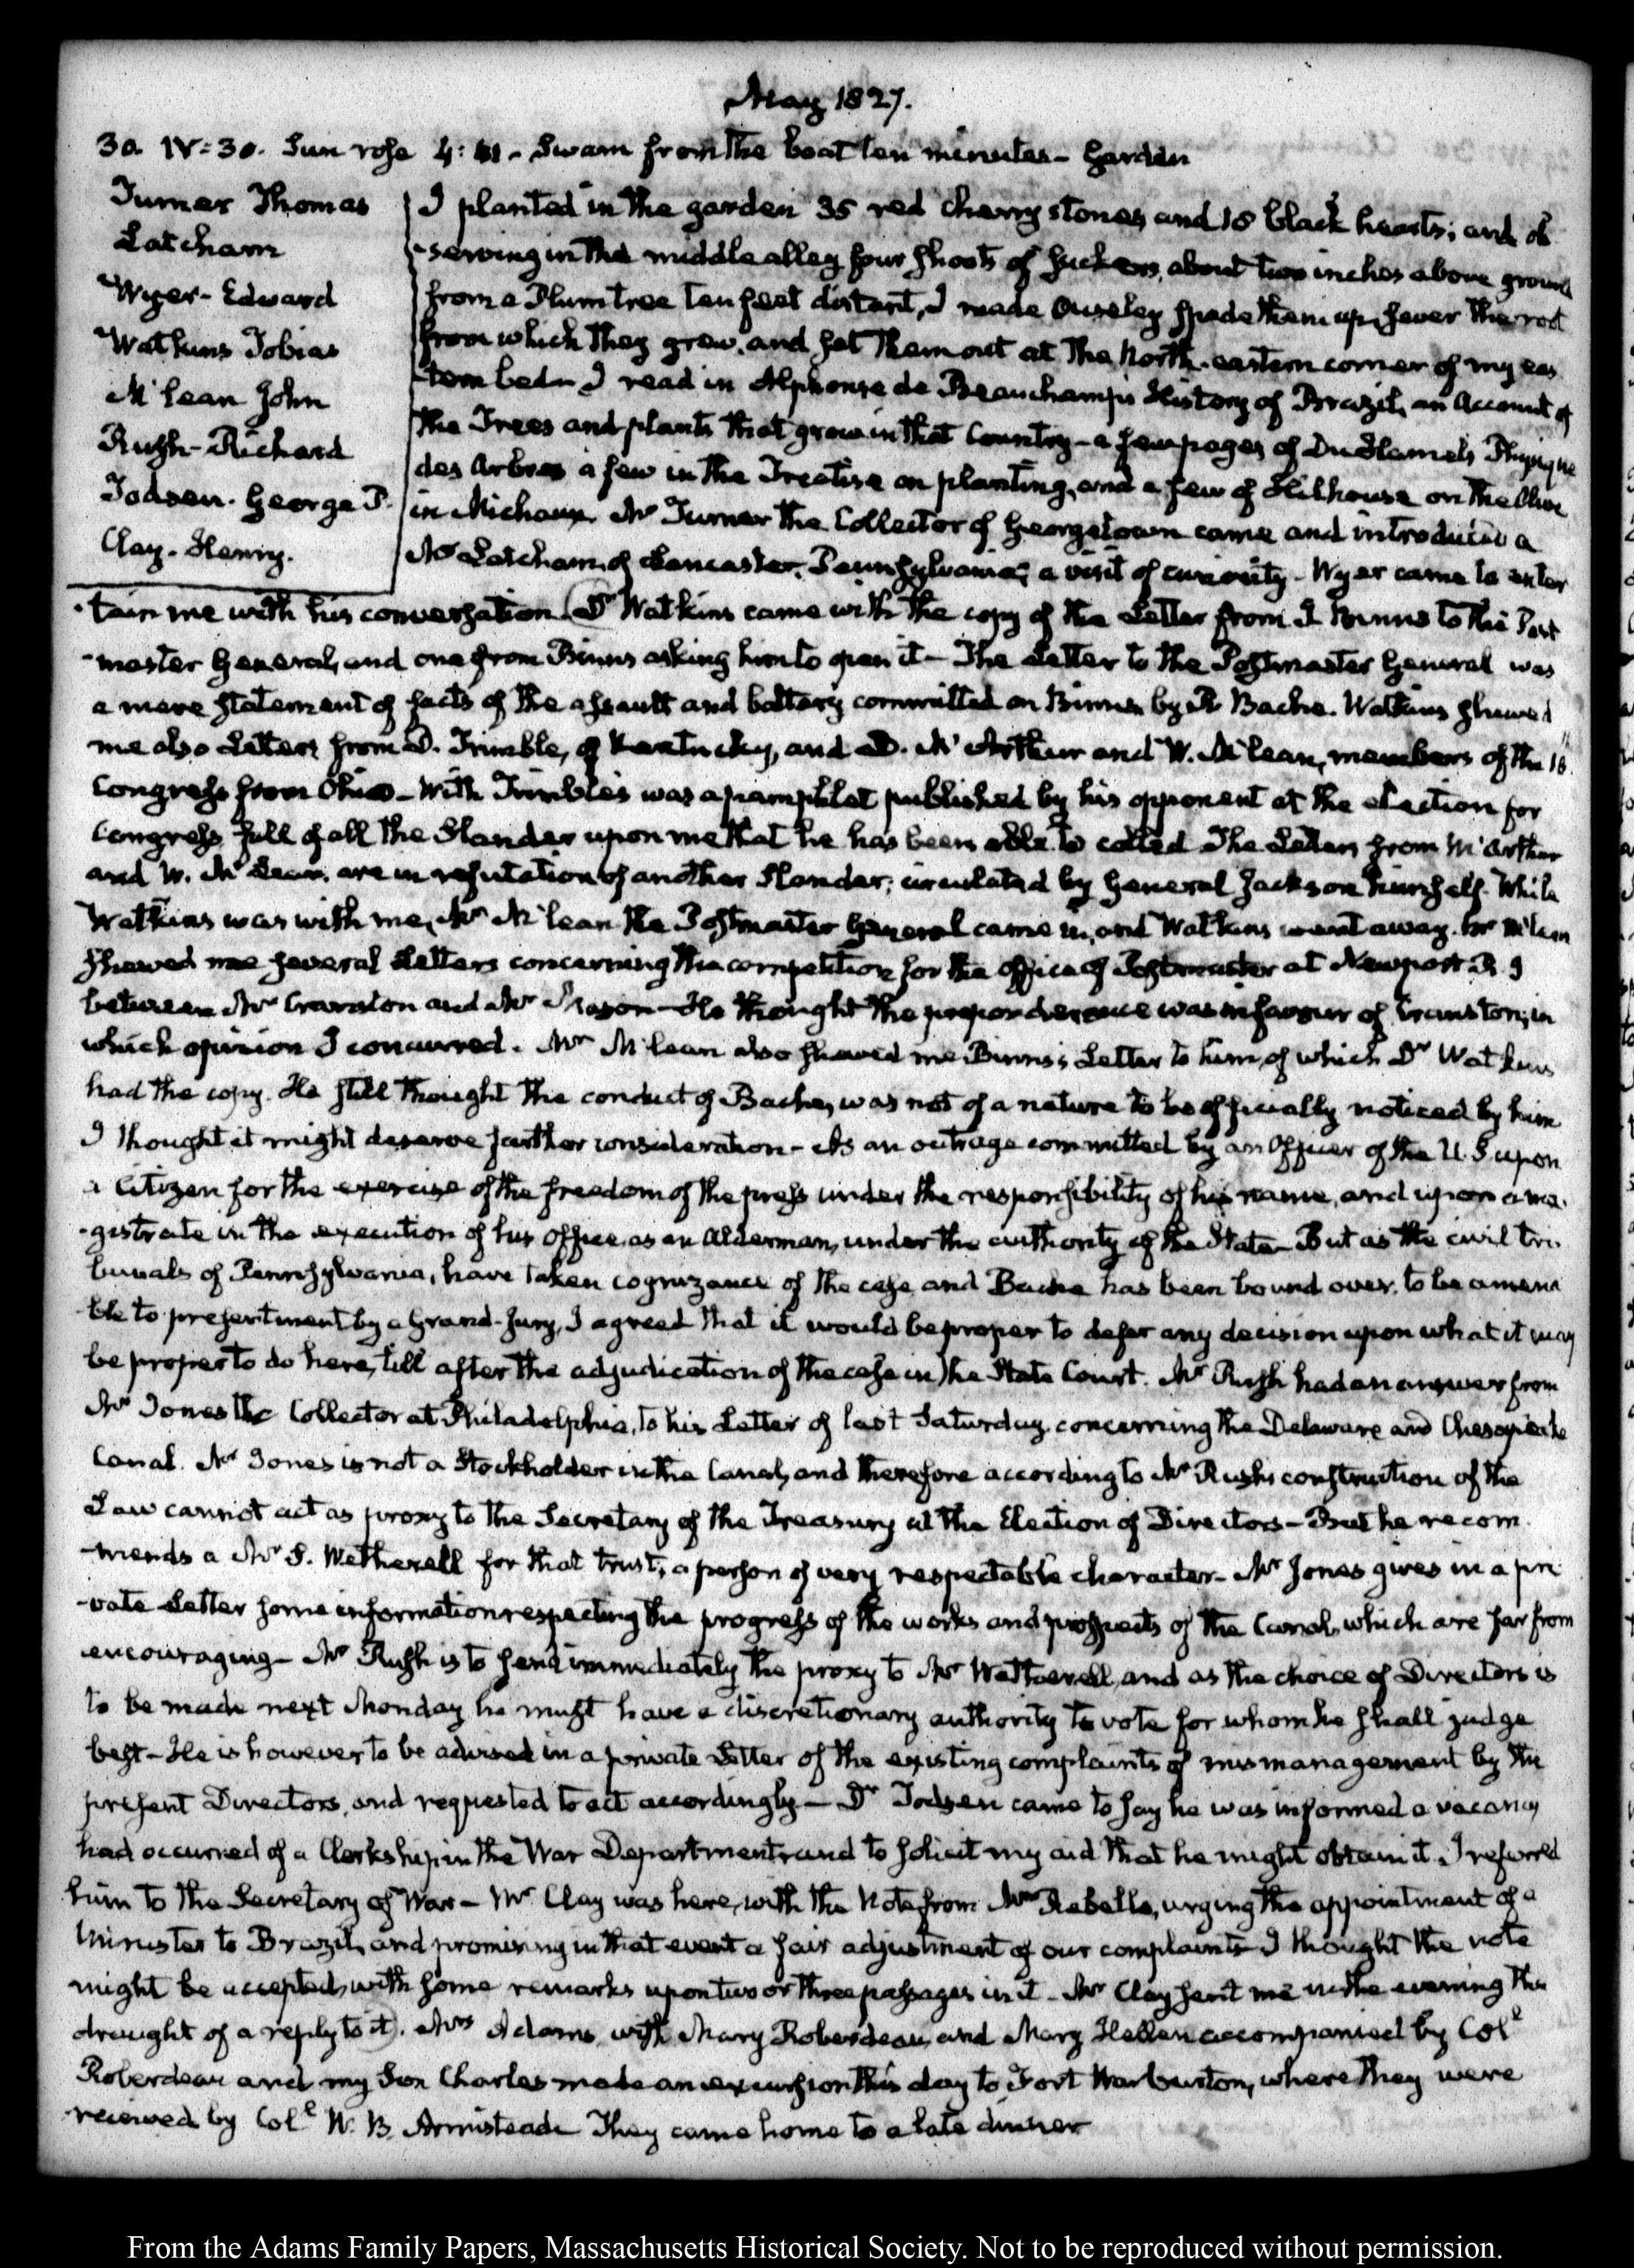 May 1827.
30. IV:30. Sun rose 4:41 - Swam from the boat ten minutes - Garden
Turner Thomas
Latcham
Wyer - Edward
Watkins Tobias
McLean John
Rush - Richard
Todsen. George P.
Clay - Henry.
I planted in the garden 35 red cherry stones and 18 black hearts; and ob
-serving in the middle alley four shoots of suckers, about two inches above ground
from a Plum tree ten feet distant, I made Ouseley spade them up, sever the root
from which they grew, and set them out at the North-eastern corner of my eas
-tern bed - I read in Alphonse de Beauchamp's History of Brazil, an Account of
the Trees and plants that grow in that Country - a few pages of DuHamel's Physique
des Arbres a few in the Treatise on planting, and a few of Hilhouse on the Olive
in Michaux. Mr Turner the Collector of Georgetown came and introduced a
Mr Latcham, of Lancaster, Pennsylvania; a visit of curiosity - Wyer came to enter
-tain me with his conversation. Dr Watkins came with the copy of the Letter from J. Binns to the Post
-master General, and one from Binns asking him to open it - The Letter to the Postmaster General was
a mere statement of facts of the assault and battery committed on Binns by R Bache. Watkins shewed
me also Letters from D. Trimble, of Kentucky, and D. McArthur and W. McLean, members of the 18th
Congress from Ohio - With Trimble's was a pamphlet published by his opponent at the election for
Congress full of all the Slander upon me that he has been able to collect. The Letters from McArthur
and W. McLean, are in refutation of another Slander; circulated by General Jackson himself. While
Watkins was with me, Mr McLean the Postmaster General came in, and Watkins went away. Mr McLean
shewed me several Letters concerning the competition for the office of Postmaster at Newport R. I
between Mr Cranston and Mr Mason - He thought the preponderance was in favour of Cranston; in
which opinion I concurred. Mr McLean also shewed me Binns's Letter to him, of which Dr Watkins
had the copy. He still thought the conduct of Bache, was not of a nature to be officially noticed by him
I thought it might deserve further consideration - As an outrage committed by an Officer of the U.S upon
a Citizen for the exercise of the freedom of the press under the responsibility of his name, and upon a ma-
-gistrate in the execution of his office, as an Alderman, under the authority of the State - But as the civil tri-
bunals of Pennsylvania, have taken cognizance of the case and Bache has been bound over, to be amena
-ble to presentment by a Grand-Jury, I agreed that it would be proper to defer any decision upon what it may
be proper to do here, till after the adjudication of the case in the State Court. Mr Rush had an answer from
Mr Jones the Collector at Philadelphia, to his Letter of last Saturday, concerning the Delaware and Chesapeake
Canal. Mr Jones is not a Stockholder in the Canal, and therefore according to Mr Rush's construction of the
Law cannot act as proxy to the Secretary of the Treasury at the Election of Directors - But he recom-
-mends a Mr S. Wetherell for that trust; a person of very respectable character - Mr Jones gives in a pri
-vate Letter some information respecting the progress of the works and prospects of the Canal, which are far from
encouraging - Mr Rush is to send immediately the proxy to Mr Wetherell, and as the choice of Directors is
to be made next Monday he must have a discretionary authority to vote for whom he shall judge
best - He is however to be advised in a private Letter of the existing complaints of mismanagement by the
present Directors, and requested to act accordingly - Dr Todsen came to say he was informed a vacancy
had occurred of a Clerkship in the War Department, and to solicit my aid that he might obtain it. I referred
him to the Secretary of War - Mr Clay was here, with the Note from Mr Rebello, urging the appointment of a
Minister to Brazil, and promising in that event a fair adjustment of our complaints - I thought the note
might be accepted, with some remarks upon two or three passages in it - Mr Clay sent me in the evening the
draught of a reply to it). Mrs Adams, with Mary Roberdeau, and Mary Hellen accompanied by Coll
Roberdeau and my Son Charles made an excursion this day to Fort Warburton, where they were
received by Coll W. B. Armistead. They came home to a late dinner
From the Adams Family Papers, Massachusetts Historical Society. Not to be reproduced without permission.